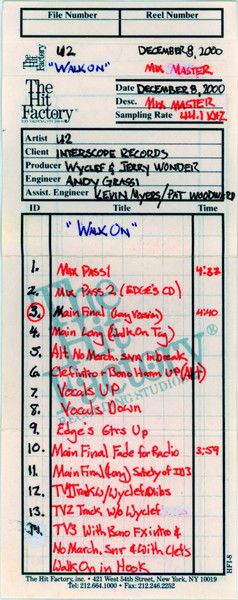 File Number Reel Number
The Hit Factory
U2 DECEMBER 8, 2000
"WALK ON" MIX MASTER
The Hit Factory
Date DECEMBER 8, 2000
Desc. MIX MASTER
Sampling Rate 44.1 KHZ
Artist U2
Client INTERSCOPE RECORDS
Producer Wyclef & JERRY WONDER
Engineer ANDY GRASSI
Assist. Engineer KEVIN MYERS/PAT WOODWARD
ID Title Time
"WALK ON"
1. Mix Pass 1 4:32
2. Mix Pass 2 (EDGE'S CD)
3. Main Final (Long Version) 4:40
4. Main Long (Walk On Tag)
5. Alt No March. Snr in break
6. Clef intro + Bono Harm Up (Alt)
7. Vocals Up
8. Vocals Down
9. Edge's Gtrs Up
10. Main Final Fade for Radio 3:59
11. Main Final (Long) Safety of ID3
12. TV Track w/ Wyclef Adlibs
13. TV2 Track w/o Wyclef
14. TV3 With Bono Fx intro &
No March, Snr & With Clef's
Walk On in Hook
HF1-8
The Hit Factory, inc. • 421 West 54th Street, New York, NY 10019
Tel: 212.664.1000 • Fax: 212.246.2252